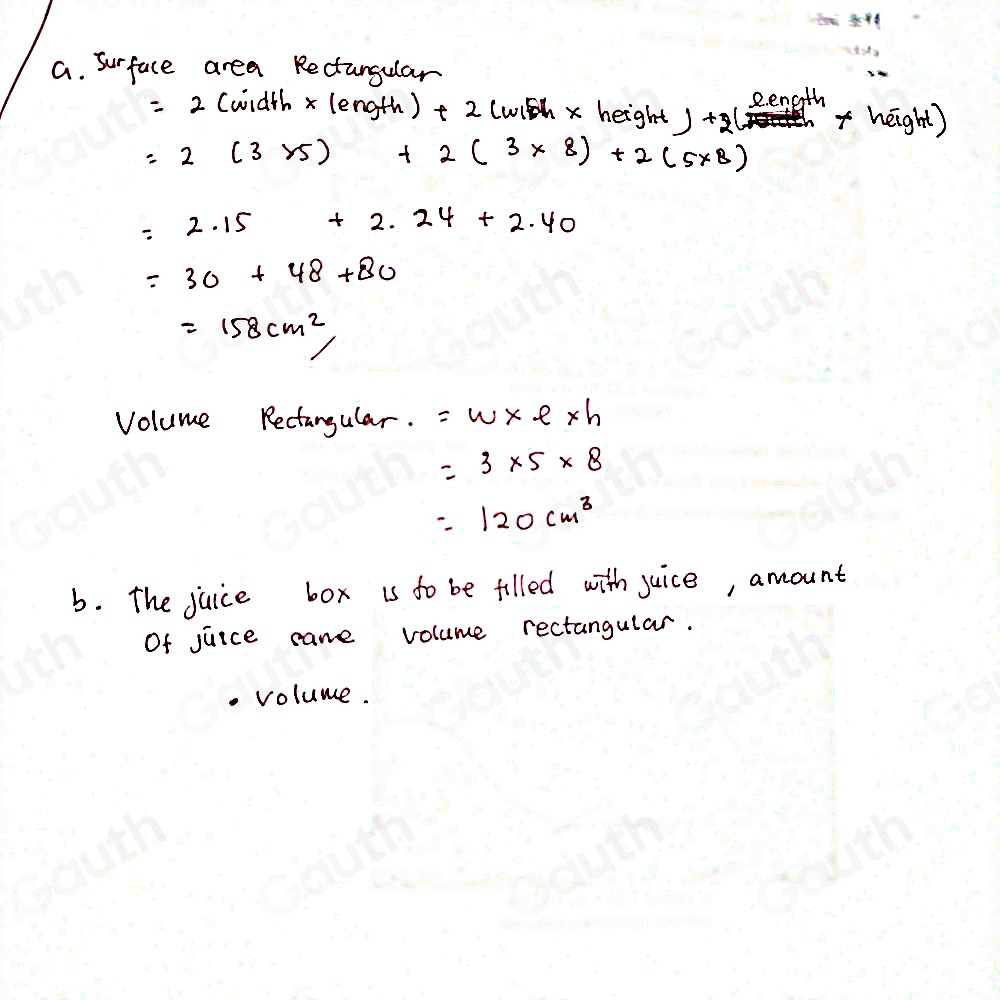 a. Surface area Rectangular
= 2 (width × length) + 2 (width × height) + 2(length × height)
= 2 (3 × 5) + 2 ( 3 × 8) + 2 (5×8)
= 2.15 + 2. 24 + 2.40
= 30 + 48 + 80
= 158 cm²
Volume Rectangular. = w × l × h
= 3 × 5 × 8
= 120 cm³
b. The juice box is to be filled with juice, amount
Of juice came volume rectangular.
• Volume.